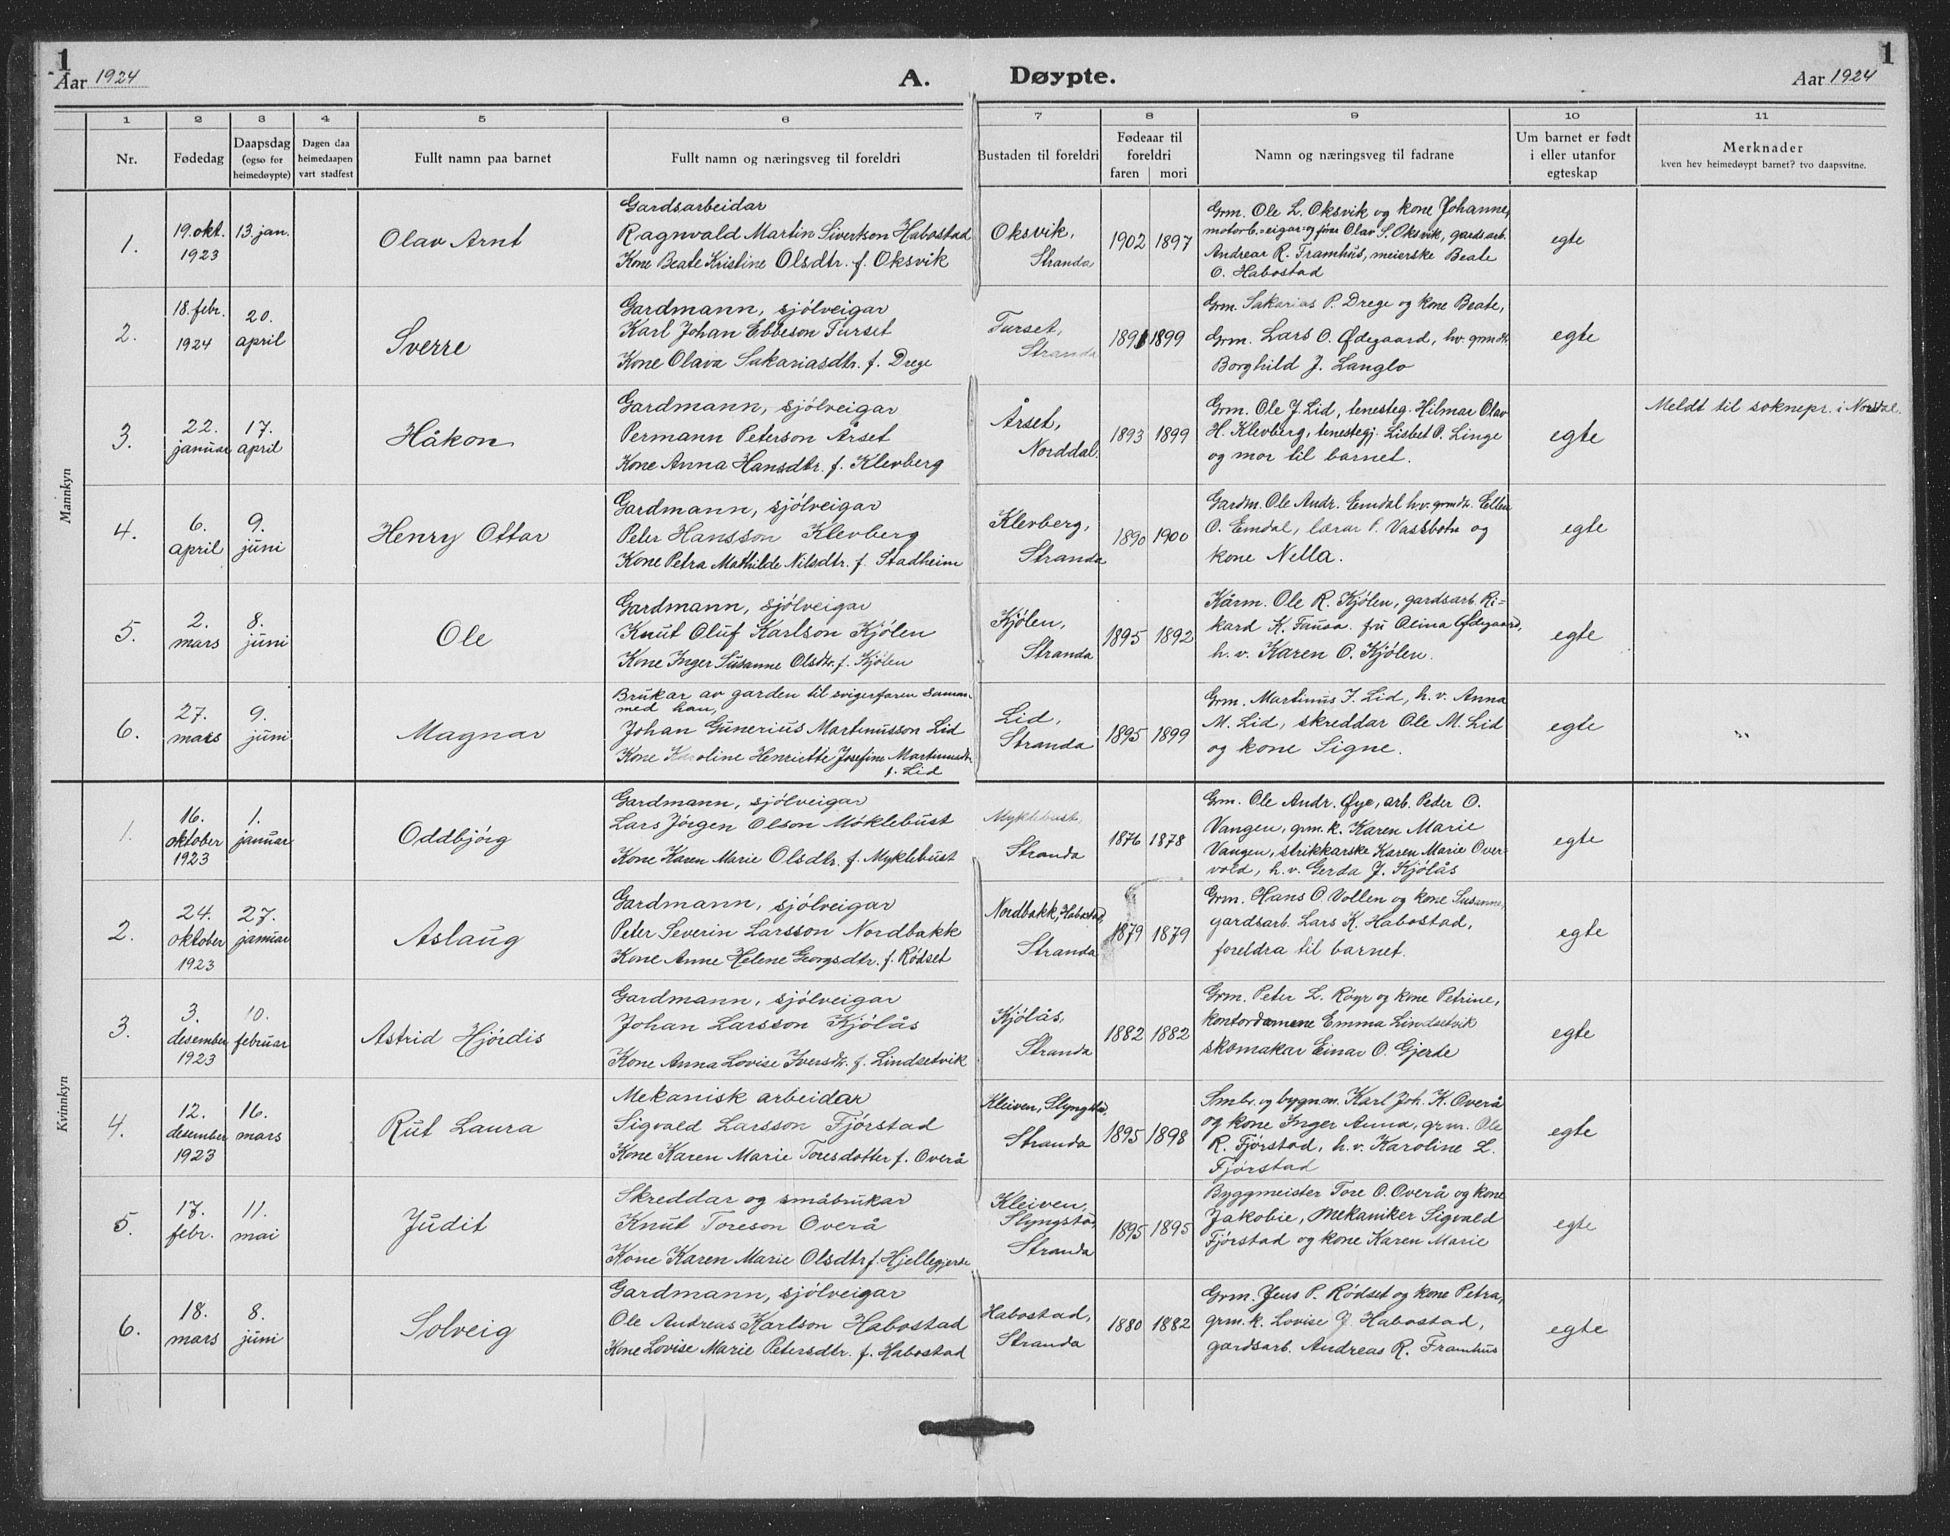 1
Aar 1924
A. Døypte.
Aar 1924
1
1 2 3 4 5 6 7 8 9 10 11
Nr.
Fødedag
Daapsdag
(ogso for
heimedøypte)
Dagen daa
heimedaapen
vart stadfest
Fullt namn paa barnet
Fullt namn og næringsveg til foreldri
Bustaden til foreldri
Fødeaar til
foreldri
faren mori
Namn og næringsveg til fadrane
Um barnet er født
i eller utanfor
egteskap
Merknader
kven hev heimedøypt barnet? tvo daapsvitne.
Mannkyn
1.
19. okt.
1923
13. jan.
Olav Arnt
Gardsarbeidar
Ragnvald Martin Sivertson Habostad
Kone Beate Kristine Olsdtr. f. Oksvik
Oksvik,
Stranda
1902 1897
Grm. Ole L. Oksvik og kone Johanne,
motorb.-eigar og förar Olav S. Oksvik, gardsarb.
Andreas R. Framhus, meierske Beate
O. Habostad
egte
2.
18. febr.
1924
20.
april
Sverre
Gardmann, sjölveigar
Karl Johan Ebbeson Turset
Kone Olava Sakariasdtr. f. Drege
Turset,
Stranda
1891 1899
Grm. Sakarias P. Drege og kone Beate,
Grm. Lars O. Ödegaard, hv. grmdtr.
Borghild J. Langlo
egte
3.
22.
januar
17.
april
Håkon
Gardmann, sjölveigar
Permann Peterson Årset
Kone Anna Hansdtr. f. Klevberg
Årset,
Norddal.
1893 1899
Grm. Ole J. Lid, tenesteg. Hilmar Olav
H. Klevberg, tenestegj. Lisbet O. Linge
og mor til barnet.
egte
Meldt til soknepr. i Norddal.
4.
6.
april
9.
juni
Henry Ottar
Gardmann, sjölveigar
Peter Hansson Klevberg
Kone Petra Mathilde Nilsdtr. f. Stadheim
Klevberg,
Stranda
1890 1900
Gardm. Ole Andr. Emdal h.v. grmdtr. Ellen
O. Emdal, lærar P. Vassbotn og
kone Nella.
egte
5.
2.
mars
8.
juni
Ole
Gardmann, sjölveigar
Knut Oluf Karlson Kjölen
Kone Inger Susanne Olsdtr. f. Kjölen
Kjölen,
Stranda
1895 1892
Kårm. Ole R. Kjölen, gardsarb. Ri-
kard K. Tausa. fru Olina Ödegaard,
h. v. Karen O. Kjölen.
egte
6.
27.
mars
9.
juni
Magnar
Brukar av garden til svigerfaren saman
med han,
Johan Gunerius Martinusson Lid
Kone Karoline Henriette Josefine Martinusdtr.
f. Lid
Lid,
Stranda
1895 1899
Grm. Martinus I. Lid, h. v. Anna
M. Lid, skreddar Ole M. Lid
og kone Signe.
egte
Kvinnkyn
1.
16.
oktober
1923
1.
januar
Oddbjörg
Gardmann, sjölveigar
Lars Jörgen Olson Möklebust
Kone Karen Marie Olsdtr. f. Myklebust
Myklebust,
Stranda
1876 1878
Grm. Ole Andr. Öye, arb. Peder O.
Vangen, grm. k. Karen Marie
Vangen, strikkarske Karen Marie Over-
vold, h. v. Gerda J. Kjölås
egte
2.
24.
oktober
1923
27.
januar
Aslaug
Gardmann, sjölveigar
Peter Severin Larsson Nordbakk
Kone Anne Helene Georgsdtr. f. Rödset
Nordbakk, Habostad,
Stranda
1879 1879
Grm. Hans O. Vollen og kone Susanne,
gardsarb. Lars K. Habostad,
foreldra til barnet.
egte
3.
3.
desember
1923
10.
februar
Astrid Hjördis
Gardmann, sjölveigar
Johan Larsson Kjölås
Kone Anna Lovise Iversdtr. f. Lindsetvik
Kjölås,
Stranda
1882 1882
Grm. Peter L. Röyr og kone Petrine,
kontordamene Emma Lindsetvik
skomakar Einar O. Gjerde
egte
4.
12.
desember
1923
16.
mars
Rut Laura
Mekanisk arbeidar
Sigvald Larsson Fjörstad
Kone Karen Marie Toresdotter f. Overå
Kleiven, Slyngstad,
Stranda
1895 1898
Smbr. og bygnm. Karl Joh. K. Overå
og kone Inger Anna, grm. Ole
R. Fjörstad, h. v. Karoline L.
Fjörstad
egte
5.
17.
febr.
11.
mai
Judit
Skreddar og småbrukar
Knut Toreson Overå
Kone Karen Marie Olsdtr f. Hjellegjerde
Kleiven,
Slyngstad,
Stranda
1895 1895
Byggmeister Tore O. Overå og kone
Jakobie, Mekaniker Sigvald
Fjörstad og kone Karen Marie
egte
6.
18.
mars
8.
juni
Solveig
Gardmann, sjölveigar
Ole Andreas Karlson Habostad
Kone Lovise Marie Petersdtr. f. Habostad
Habostad,
Stranda
1880 1882
Grm. Jens P. Rödset og kone Petra,
grm. k. Lovise J. Habostad,
gardsarb. Andreas R. Framhus
egte